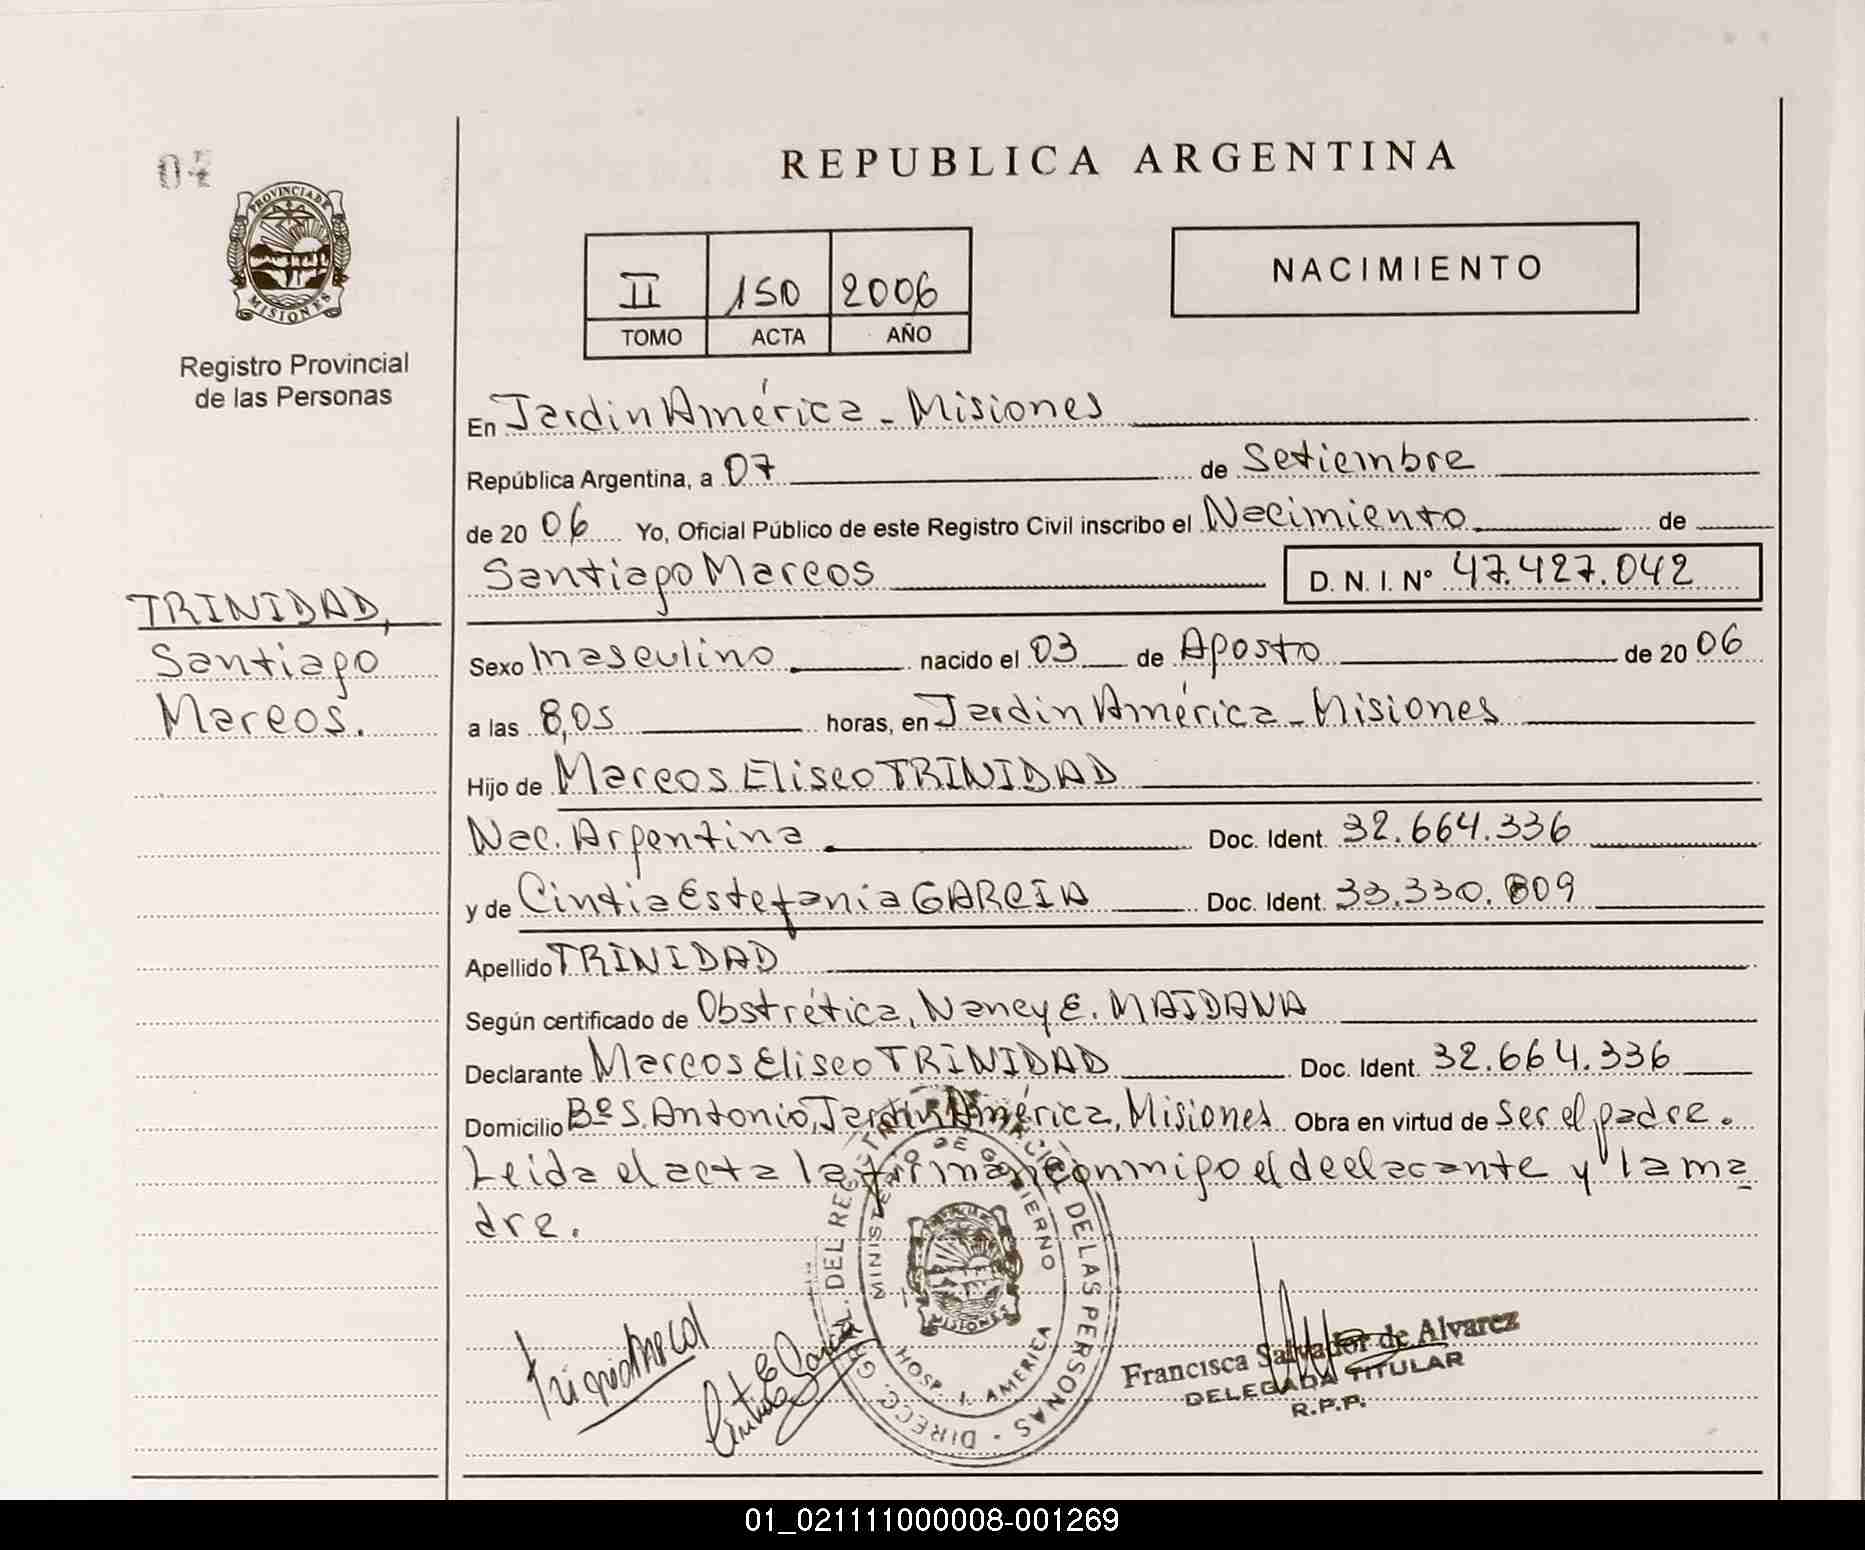 07
PROVINCIA DE
MISIONES
Registro Provincial
de las Personas
TRINIDAD,
Santiago
Marcos.
REPUBLICA ARGENTINA
II 150 2006
TOMO ACTA AÑO
NACIMIENTO
En Jardin América - Misiones
República Argentina, a 07 de Setiembre
de 20 06 Yo, Oficial Público de este Registro Civil inscribo el Nacimiento de
Santiago Marcos D. N. I. Nº 47.427.042
Sexo Masculino nacido el 03 de Agosto de 20 06
a las 8,05 horas, en Jardin América - Misiones
Hijo de Marcos Eliseo TRINIDAD
Nac. Argentina Doc. Ident. 32.664.336
y de Cintia Estefania GARCIA Doc. Ident. 33.330.809
Apellido TRINIDAD
Según certificado de Obstrética, Nancy E. MAIDANA
Declarante Marcos Eliseo TRINIDAD Doc. Ident. 32.664.336
Domicilio Bº S. Antonio, Jardin América, Misiones Obra en virtud de ser el padre.
Leida el acta la firman conmigo el declarante y la ma
dre.
MINISTERIO DE GOBIERNO
DE LAS PERSONAS
HOSP. J. AMERICA
MISIONES
Francisca Salvador de Alvarez
DELEGADA TITULAR
R.P.P.
01_021111000008-001269